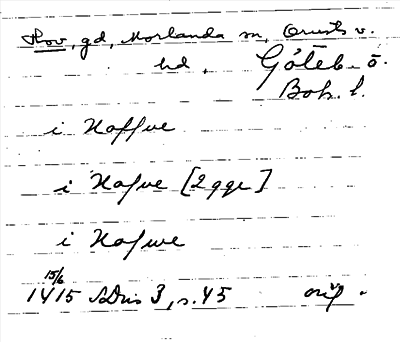 Hov, gd, Morlanda sn, Orusts v.
hd, Göteb. o.
Boh. l.
i Haffwe
i Hafwe [2 ggr]
i Hafwe
15/6
1415 SDns 3, s. 45 orig.